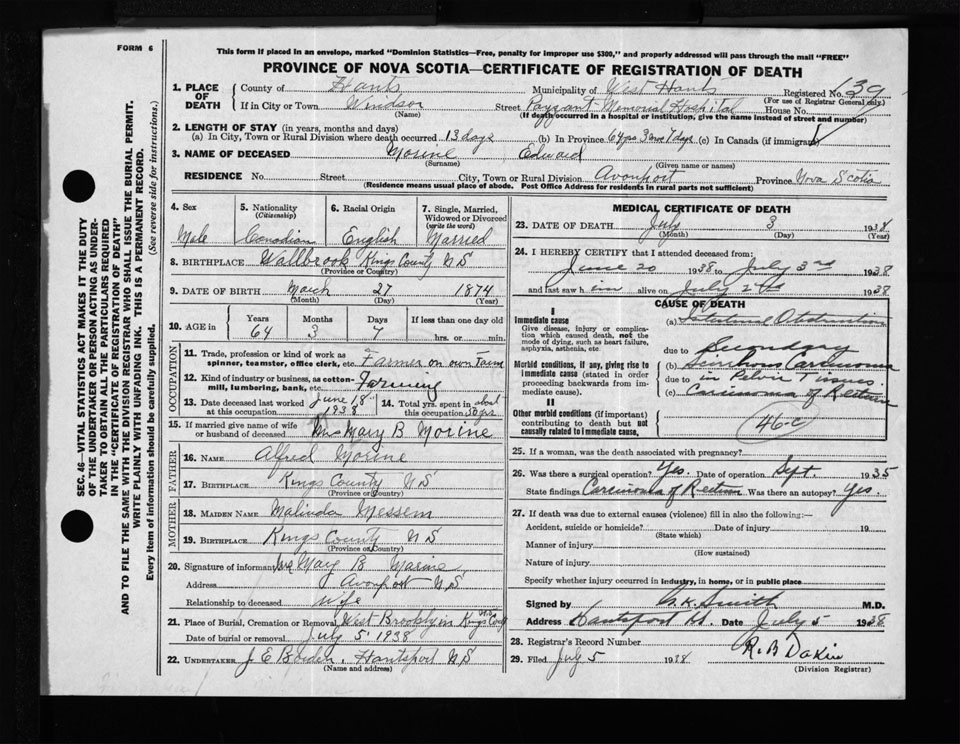 FORM 6
This form if placed in an envelope, marked "Dominion Statistics—Free, penalty for improper use $300," and properly addressed will pass through the mail "FREE"
PROVINCE OF NOVA SCOTIA—CERTIFICATE OF REGISTRATION OF DEATH
1. PLACE OF DEATH
County of Hants Municipality of West Hants Registered No. 139
(For use of Registrar General only.)
If in City or Town Windsor Street Payzant Memorial Hospital House No.
(Name) (If death occurred in a hospital or institution, give the name instead of street and number)
2. LENGTH OF STAY (in years, months and days)
(a) In City, Town or Rural Division where death occurred 13 days (b) In Province 64 yrs 3 mos 7 days (c) In Canada (if immigrant)
3. NAME OF DECEASED Morine Edward
(Surname) (Given name or names)
RESIDENCE No. Street City, Town or Rural Division Avonport Province Nova Scotia
(Residence means usual place of abode. Post Office Address for residents in rural parts not sufficient)
SEC. 46—VITAL STATISTICS ACT MAKES IT THE DUTY
OF THE UNDERTAKER OR PERSON ACTING AS UNDER-
TAKER TO OBTAIN ALL THE PARTICULARS REQUIRED
IN THE "CERTIFICATE OF REGISTRATION OF DEATH"
AND TO FILE THE SAME WITH THE DIVISION REGISTRAR WHO SHALL ISSUE THE BURIAL PERMIT.
WRITE PLAINLY WITH UNFADING INK. THIS IS A PERMANENT RECORD.
Every item of information should be carefully supplied. (See reverse side for instructions.)
4. Sex 5. Nationality 6. Racial Origin 7. Single, Married,
(Citizenship) Widowed or Divorced
(write the word)
Male Canadian English Married
8. BIRTHPLACE Wallbrook Kings County N S
(Province or Country)
9. DATE OF BIRTH March 27 1874
(Month) (Day) (Year)
10. AGE in Years Months Days If less than one day old
64 3 7 hrs. or min.
OCCUPATION
11. Trade, profession or kind of work as
spinner, teamster, office clerk, etc. Farmer on own Farm
12. Kind of industry or business, as cotton-
mill, lumbering, bank, etc. Farming
13. Date deceased last worked at this occupation June 18 1938
14. Total yrs. spent in this occupation about 50 yrs
15. If married give name of wife
or husband of deceased Mrs Mary B Morine
FATHER
16. NAME Alfred Morine
17. BIRTHPLACE Kings County N S
(Province or Country)
MOTHER
18. MAIDEN NAME Malinda Messem
19. BIRTHPLACE Kings County N S
(Province or Country)
20. Signature of informant Mrs Mary B Morine
Address Avonport N S
Relationship to deceased Wife
21. Place of Burial, Cremation or Removal West Brooklyn Kings County
Date of burial or removal July 5 1938
22. UNDERTAKER J E Borden, Hantsport N S
(Name and address)
MEDICAL CERTIFICATE OF DEATH
23. DATE OF DEATH July 3 1938
(Month) (Day) (Year)
24. I HEREBY CERTIFY that I attended deceased from:
June 20 1938 to July 3rd 1938
and last saw him alive on July 2nd 1938
CAUSE OF DEATH
I
Immediate cause
Give disease, injury or complication which caused death, not the mode of dying, such as heart failure, asphyxia, asthenia, etc.
Morbid conditions, if any, giving rise to immediate cause (stated in order proceeding backwards from immediate cause).
II
Other morbid conditions (if important) contributing to death but not causally related to immediate cause.
(a) Intestinal Obstruction
due to Secondary
(b) Scirrhous Carcinoma
due to in Pelvic Tissues
(c) Carcinoma of Rectum
46-c
25. If a woman, was the death associated with pregnancy?
26. Was there a surgical operation? Yes. Date of operation Sept. 1935
State findings Carcinoma of Rectum Was there an autopsy? Yes.
27. If death was due to external causes (violence) fill in also the following:—
Accident, suicide or homicide? Date of injury 19
(State which)
Manner of injury
(How sustained)
Nature of injury
Specify whether injury occurred in industry, in home, or in public place
Signed by Smith M.D.
Address Hantsport N.S. Date July 5 1938
28. Registrar's Record Number
29. Filed July 5 1938 R. B Dakin
(Division Registrar)